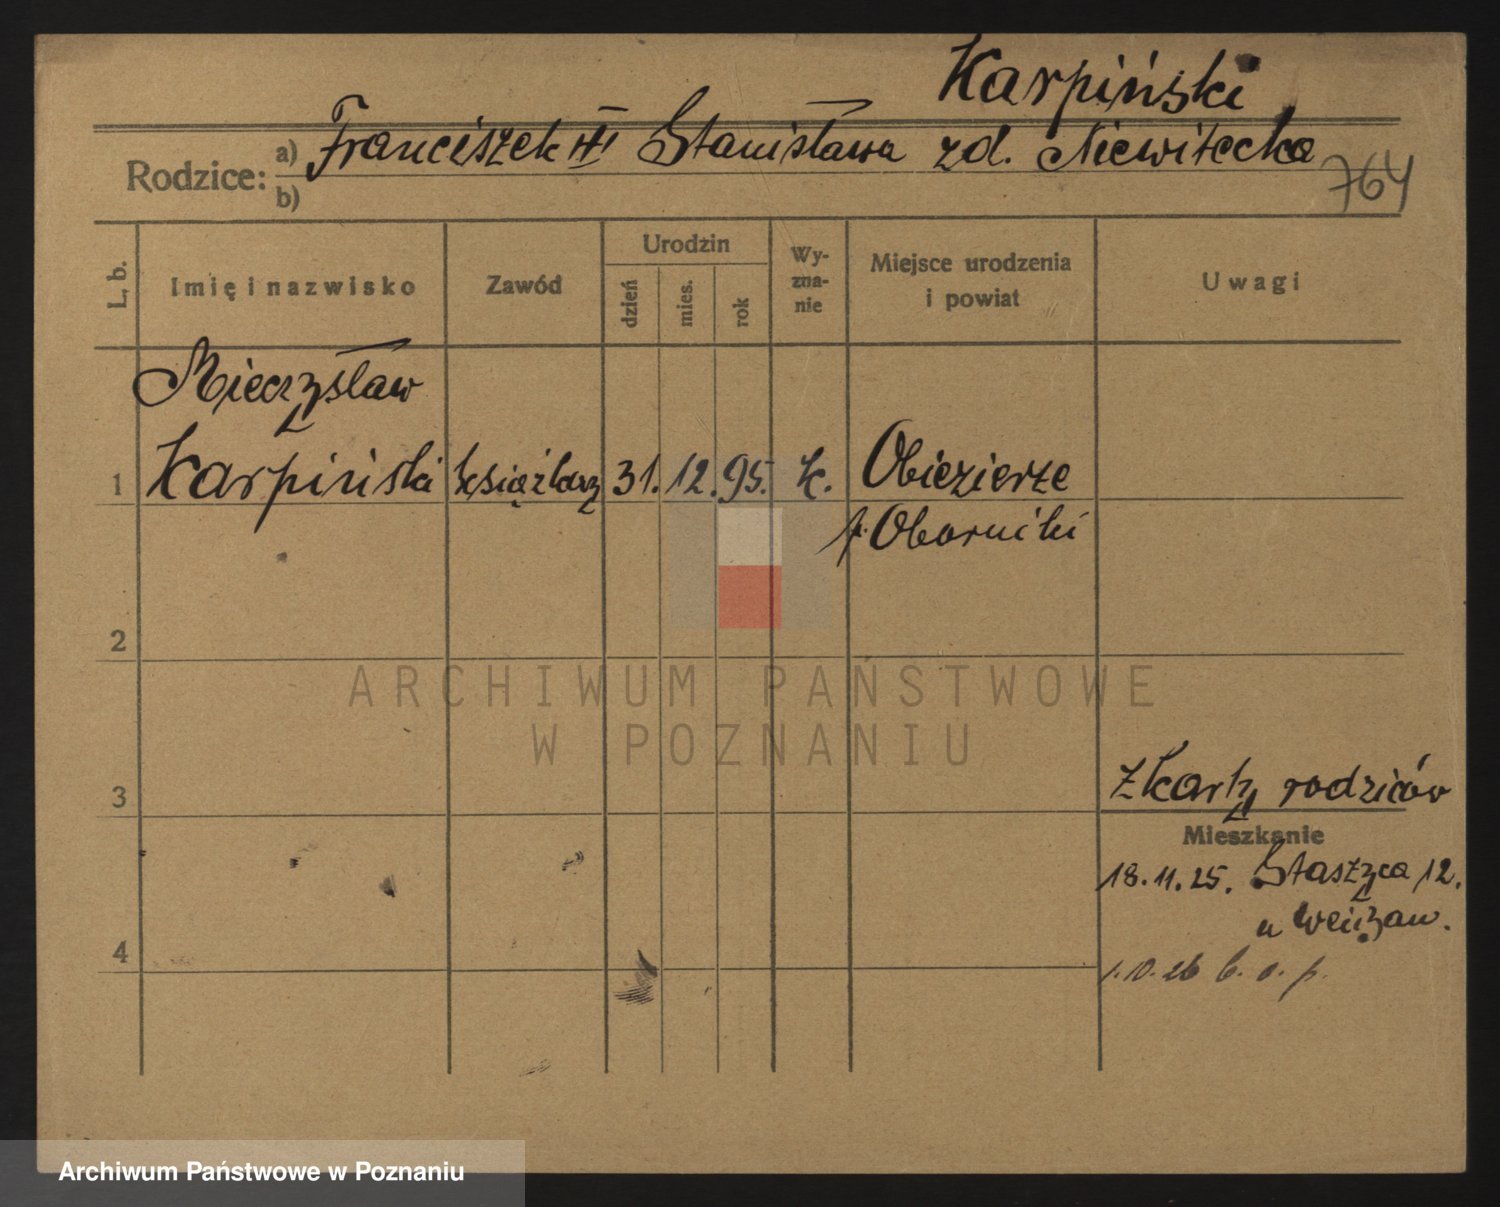 Karpiński
Rodzice: a) Franciszek III Stanisława zd. Niewitecka
b)
764
L. b.
Imię i nazwisko
Zawód
Urodzin
dzień
mies.
rok
Wy-
zna-
nie
Miejsce urodzenia
i powiat
Uwagi
Mieczysław
1 Karpiński książkarz 31. 12. 95. k. Obiezierze
p. Oborniki
2
ARCHIWUM PAŃSTWOWE
W POZNANIU
3
z karty rodziców
Mieszkanie
18.11.25. Staszyca 12.
u
4
1.10.26 b. o. p.
Archiwum Państwowe w Poznaniu